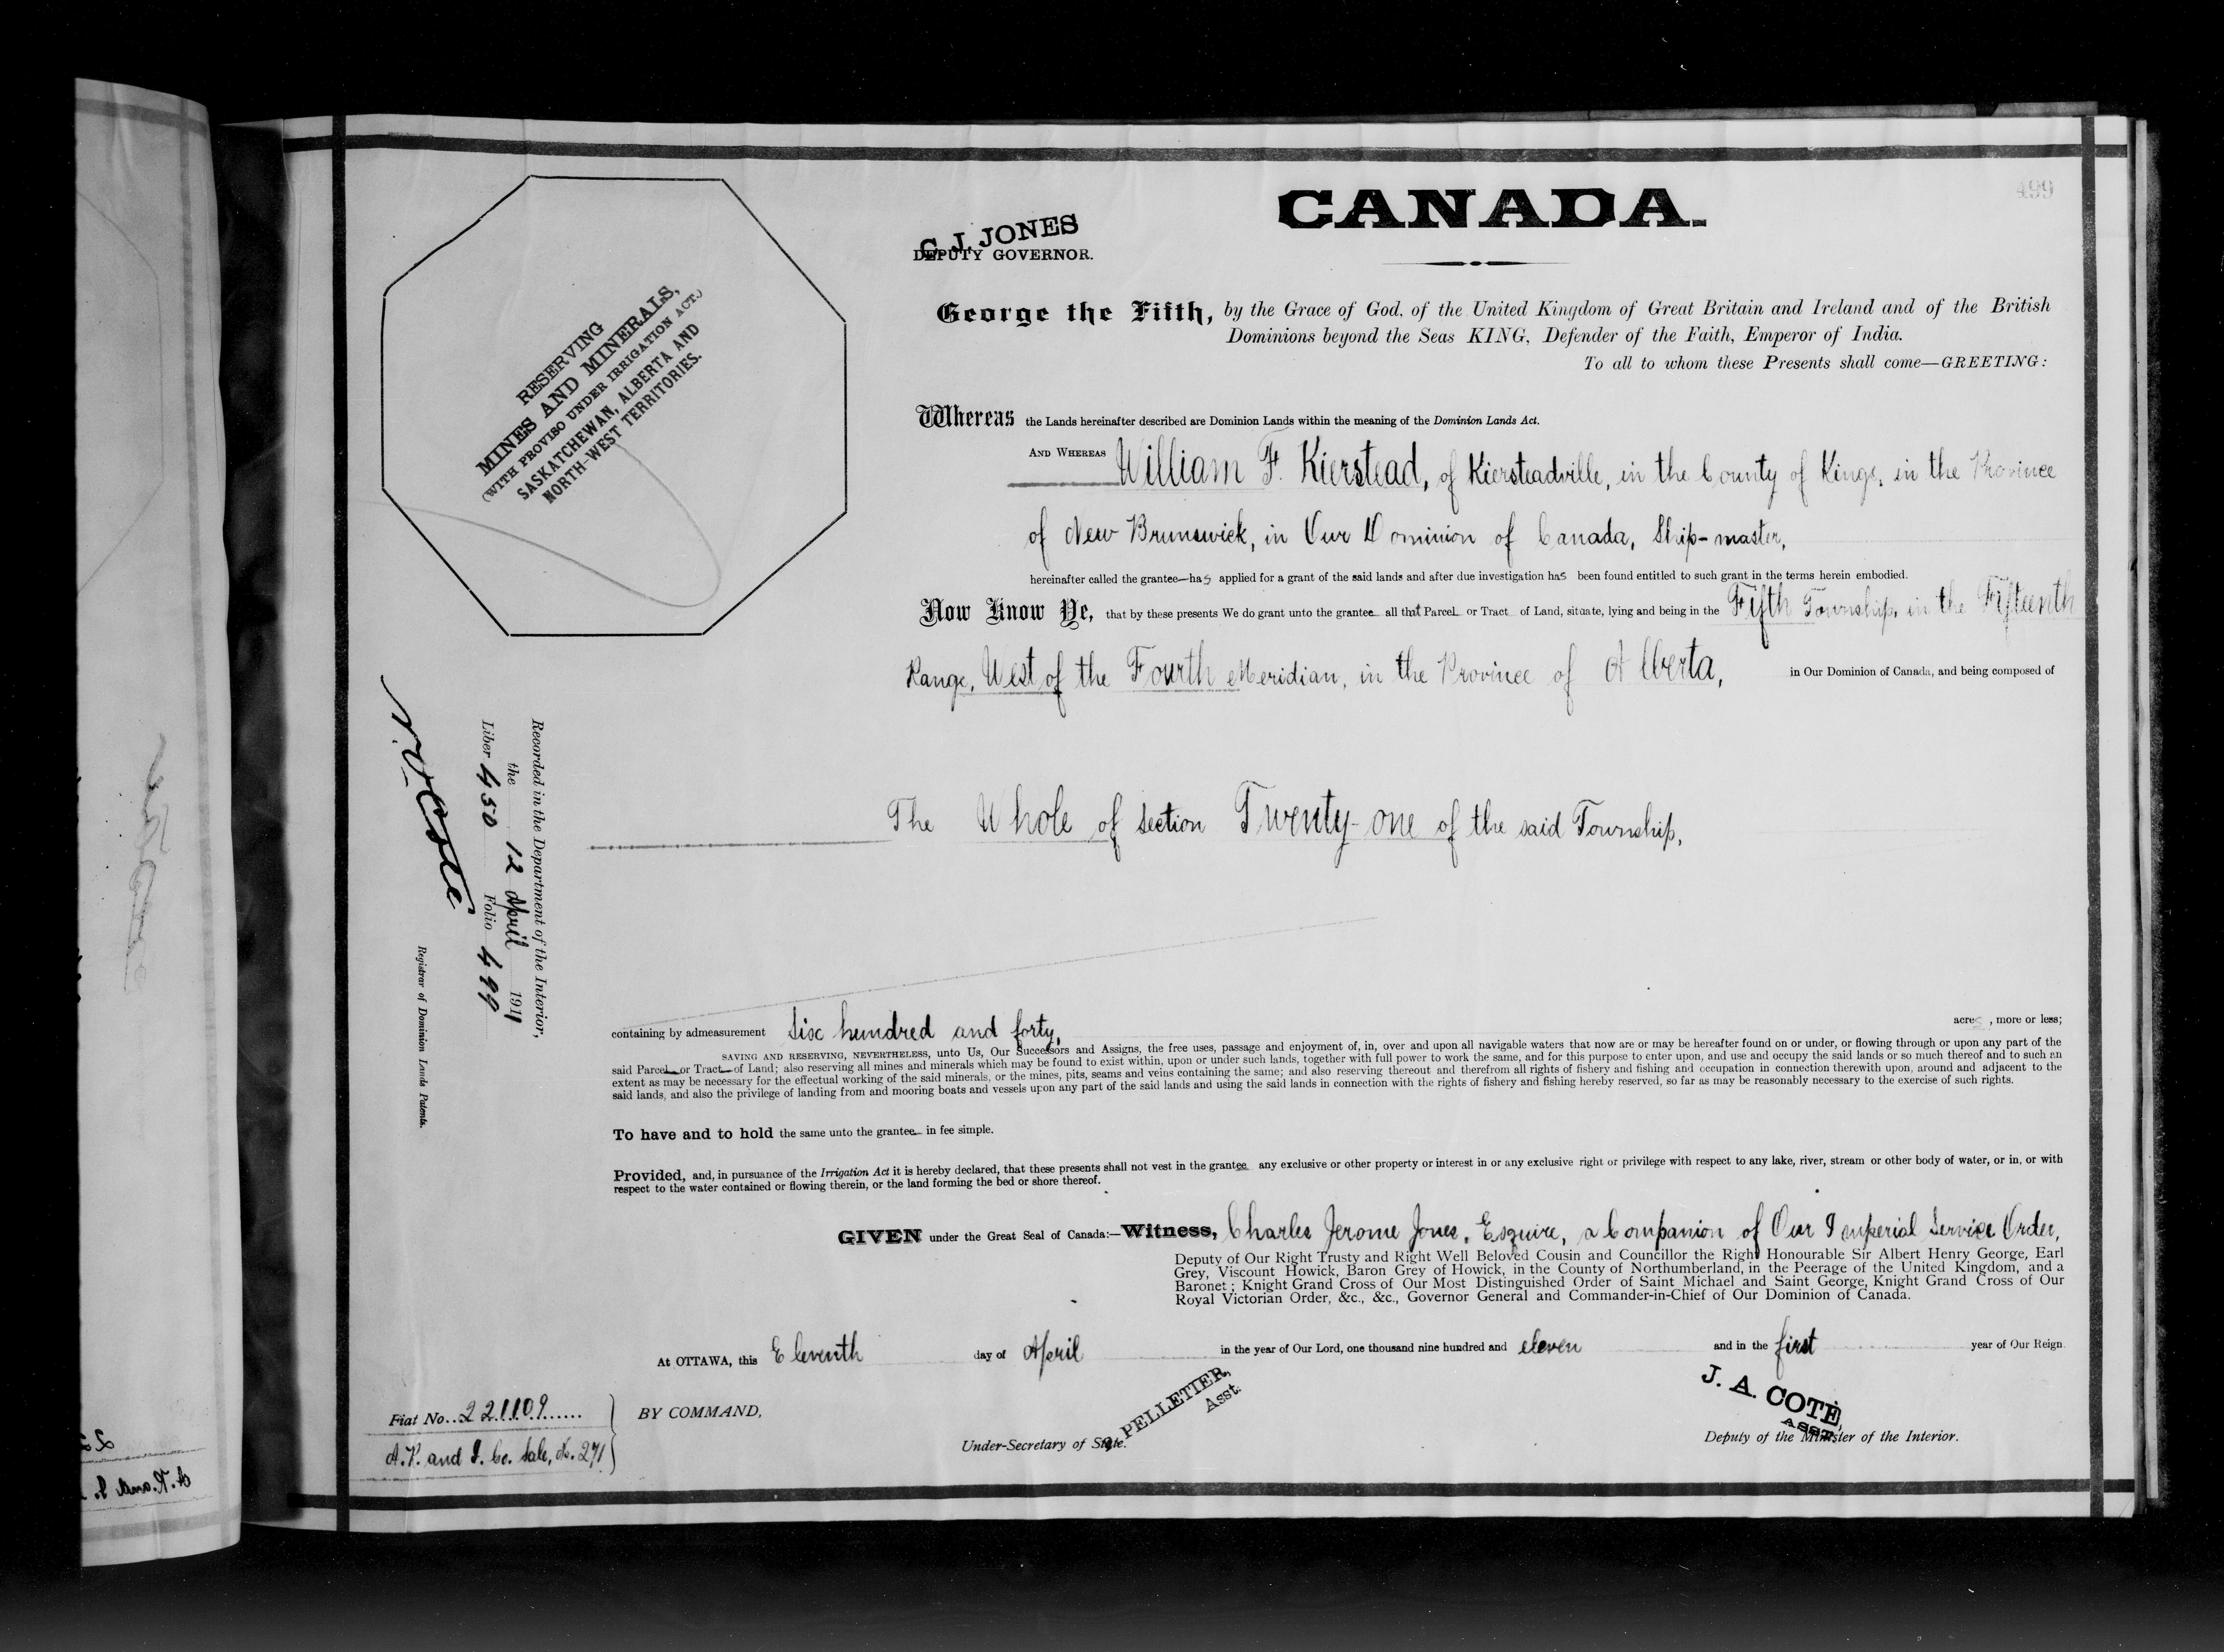 499
CANADA.
C. J. JONES
DEPUTY GOVERNOR.
RESERVING
MINES AND MINERALS,
(WITH PROVISO UNDER IRRIGATION ACT.)
SASKATCHEWAN, ALBERTA AND
NORTH-WEST TERRITORIES.
George the Fifth, by the Grace of God, of the United Kingdom of Great Britain and Ireland and of the British
Dominions beyond the Seas KING, Defender of the Faith, Emperor of India.
To all to whom these Presents shall come—GREETING:
Whereas the Lands hereinafter described are Dominion Lands within the meaning of the Dominion Lands Act.
AND WHEREAS William F. Kierstead, of Kiersteadville, in the County of Kings, in the Province
of New Brunswick, in Our Dominion of Canada, Ship-master,
hereinafter called the grantee—has applied for a grant of the said lands and after due investigation has been found entitled to such grant in the terms herein embodied.
Now Know Ye, that by these presents We do grant unto the grantee all that Parcel or Tract of Land, situate, lying and being in the Fifth Township, in the Fifteenth
Range, West of the Fourth Meridian, in the Province of Alberta, in Our Dominion of Canada, and being composed of
The Whole of section Twenty-one of the said Township,
Recorded in the Department of the Interior,
the 12 April 1911
Liber 450 Folio 499
N. O. Coté
Registrar of Dominion Lands Patents.
containing by admeasurement Six hundred and forty, acres, more or less;
SAVING AND RESERVING, NEVERTHELESS, unto Us, Our Successors and Assigns, the free uses, passage and enjoyment of, in, over and upon all navigable waters that now are or may be hereafter found on or under, or flowing through or upon any part of the
said Parcel or Tract of Land; also reserving all mines and minerals which may be found to exist within, upon or under such lands, together with full power to work the same, and for this purpose to enter upon, and use and occupy the said lands or so much thereof and to such an
extent as may be necessary for the effectual working of the said minerals, or the mines, pits, seams and veins containing the same; and also reserving thereout and therefrom all rights of fishery and fishing and occupation in connection therewith upon, around and adjacent to the
said lands, and also the privilege of landing from and mooring boats and vessels upon any part of the said lands and using the said lands in connection with the rights of fishery and fishing hereby reserved, so far as may be reasonably necessary to the exercise of such rights.
To have and to hold the same unto the grantee in fee simple.
Provided, and, in pursuance of the Irrigation Act it is hereby declared, that these presents shall not vest in the grantee any exclusive or other property or interest in or any exclusive right or privilege with respect to any lake, river, stream or other body of water, or in, or with
respect to the water contained or flowing therein, or the land forming the bed or shore thereof.
GIVEN under the Great Seal of Canada:—Witness, Charles Jerome Jones, Esquire, a Companion of Our Imperial Service Order,
Deputy of Our Right Trusty and Right Well Beloved Cousin and Councillor the Right Honourable Sir Albert Henry George, Earl
Grey, Viscount Howick, Baron Grey of Howick, in the County of Northumberland, in the Peerage of the United Kingdom, and a
Baronet; Knight Grand Cross of Our Most Distinguished Order of Saint Michael and Saint George, Knight Grand Cross of Our
Royal Victorian Order, &c., &c., Governor General and Commander-in-Chief of Our Dominion of Canada.
At OTTAWA, this Eleventh day of April in the year of Our Lord, one thousand nine hundred and eleven and in the first year of Our Reign
Fiat No. 221109
A.R. and I. Co. Sale, No. 271
BY COMMAND,
PELLETIER,
Asst.
Under-Secretary of State.
J. A. COTÉ,
ASST.
Deputy of the Minister of the Interior.